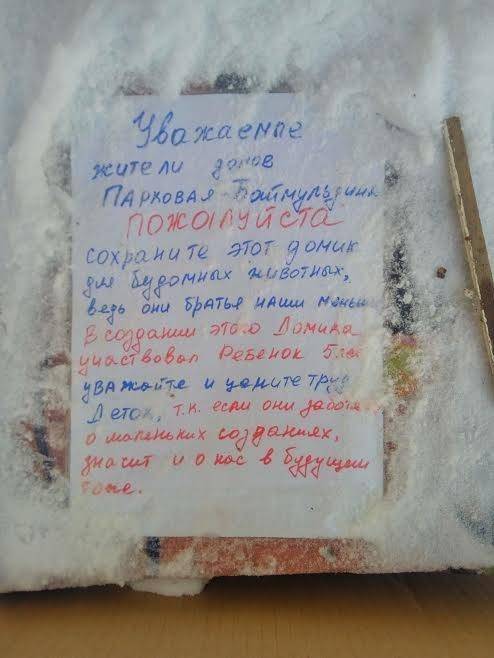 Уважаемые
жители домов
Парковая-Баймульдина
ПОЖАЛУЙСТА
сохраните этот домик
для будомных животных,
ведь они братья наши меньш
В создании этого Домика
участвовал Ребенок 5
уважайте и цените труд
Деток, т.к. если они забот
о маленьких созданиях,
значит и о нас в будущем
тоже.